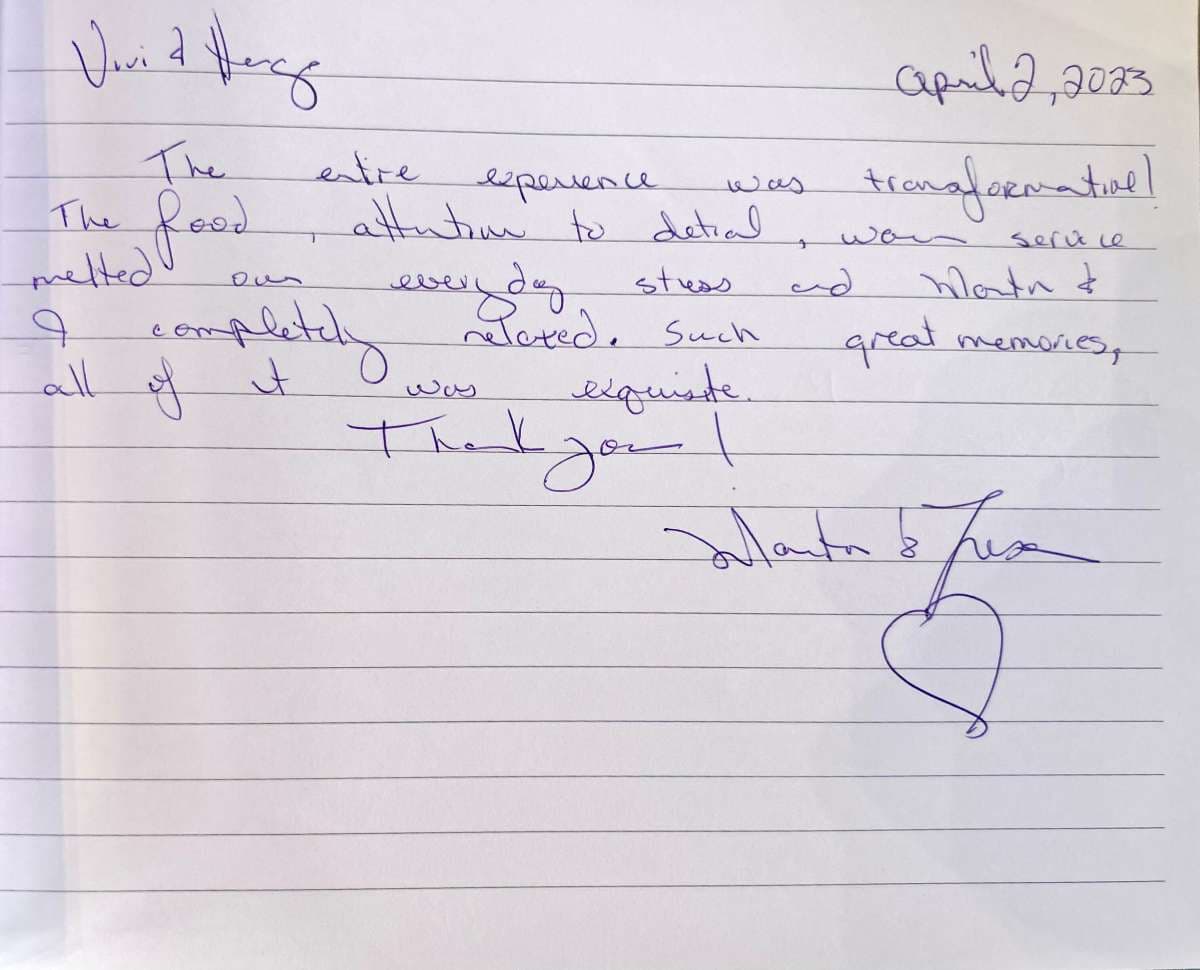 Vivi & April 2, 2023
The entire experience was transformative!
The food, attention to detial, warm service
melted our everyday stress and Martn &
I completely relaxed. Such great memories,
all of it was exquisite.
Thank you!
Martn &